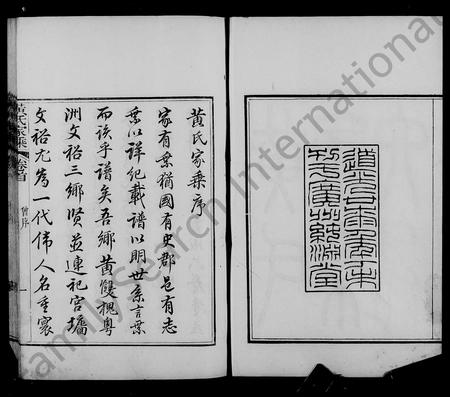 道光廿七年丁未
刊於廣州純淵堂
黃氏家乘序
家有乘猶國有史郡邑有志
乘以詳紀載譜以明世系言乘
而該乎譜矣吾鄉黃雙槐粵
洲文裕三鄉賢並連祀宮牆
文裕尤為一代偉人名重寰
黃氏家乘 卷首
曾序
一
FamilySearch International